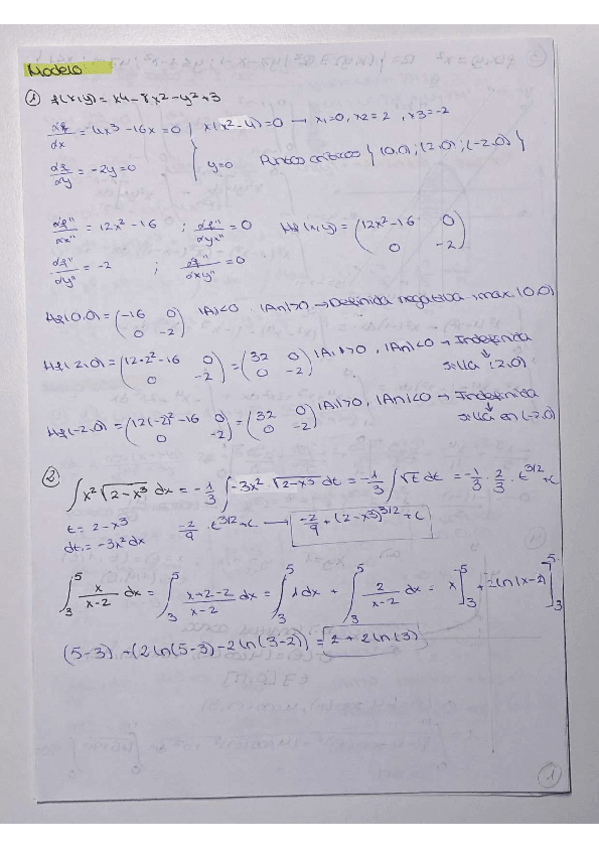 Modelo
① f(x,y) = x4 - 8x2 - y2 + 3
df/dx = 4x3 - 16x = 0 | x(x2-4)=0 → x1=0, x2=2, x3=-2
df/dy = -2y=0 | y=0 Puntos críticos {(0,0); (2,0); (-2,0)}
df''/dx'' = 12x2 - 16 ; df''/dyx'' = 0 Hf(x,y) = (12x2-16 0
0 -2)
df''/dy'' = -2 ; df''/dxy'' = 0
Hf(0,0) = (-16 0 |A1|<0, |An|>0 → Definida negativa, max (0,0)
0 -2)
Hf(2,0) = (12·2²-16 0 = (32 0 |A1|>0, |An|<0 → Indefinida
0 -2) 0 -2) ↓ silla (2,0)
Hf(-2,0) = (12(-2)²-16 0 = (32 0 |A1|>0, |An|<0 → Indefinida
0 -2) 0 -2) ↓ silla en (-2,0)
②
∫x²√2-x³ dx = -1/3 ∫-3x² √2-x³ dt = -1/3 ∫√t dt = -1/3 · 2/3 · t3/2 + C
t = 2-x³ -2/9 · t3/2 + C → -2/9 + (2-x³)3/2 + C
dt = -3x²dx
∫₃⁵ x/x-2 dx = ∫₃⁵ x+2-2/x-2 dx = ∫₃⁵ 1dx + ∫₃⁵ 2/x-2 dx = x]₃⁵ + 2ln(x-2)]₃⁵
(5-3) + (2ln(5-3) - 2ln(3-2)) = 2 + 2ln(3)
1